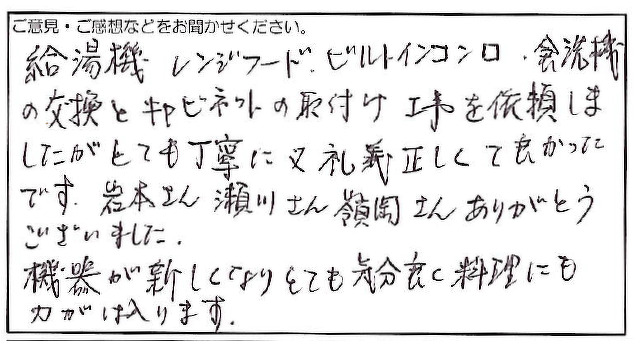 ご意見・ご感想などをお聞かせください。
給湯機 レンジフード、ビルトインコンロ、食洗機
の交換とキャビネットの取付け工事を依頼しま
したがとても丁寧に又礼義正しくて良かった
です。岩本さん 瀬川さん 嶺岡さん ありがとう
ございました。
機器が新しくなりとても気分良く料理にも
力がは入ります。